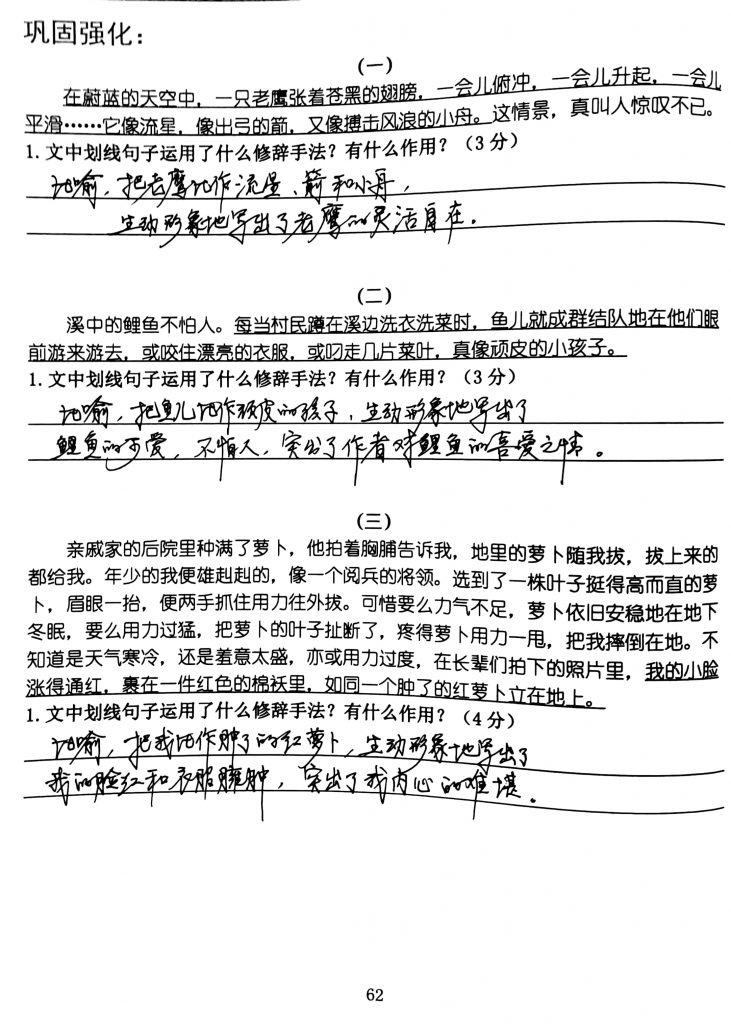 巩固强化：
（一）
在蔚蓝的天空中，一只老鹰张着苍黑的翅膀，一会儿俯冲，一会儿升起，一会儿
平滑……它像流星，像出弓的箭，又像搏击风浪的小舟。这情景，真叫人惊叹不已。
1. 文中划线句子运用了什么修辞手法？有什么作用？（3 分）
比喻，把老鹰比作流星、箭和小舟，
生动形象地写出了老鹰的灵活自在。
（二）
溪中的鲤鱼不怕人。每当村民蹲在溪边洗衣洗菜时，鱼儿就成群结队地在他们眼
前游来游去，或咬住漂亮的衣服，或叼走几片菜叶，真像顽皮的小孩子。
1. 文中划线句子运用了什么修辞手法？有什么作用？（3 分）
比喻，把鱼儿比作顽皮的孩子，生动形象地写出了
鲤鱼的可爱，不怕人，突出了作者对鲤鱼的喜爱之情。
（三）
亲戚家的后院里种满了萝卜，他拍着胸脯告诉我，地里的萝卜随我拔，拔上来的
都给我。年少的我便雄赳赳的，像一个阅兵的将领。选到了一株叶子挺得高而直的萝
卜，眉眼一抬，便两手抓住用力往外拔。可惜要么力气不足，萝卜依旧安稳地在地下
冬眠，要么用力过猛，把萝卜的叶子扯断了，疼得萝卜用力一甩，把我摔倒在地。不
知道是天气寒冷，还是羞意太盛，亦或用力过度，在长辈们拍下的照片里，我的小脸
涨得通红，裹在一件红色的棉袄里，如同一个肿了的红萝卜立在地上。
1. 文中划线句子运用了什么修辞手法？有什么作用？（4 分）
比喻，把我比作肿了的红萝卜，生动形象地写出了
我的脸红和衣服臃肿，突出了我内心的难堪。
62